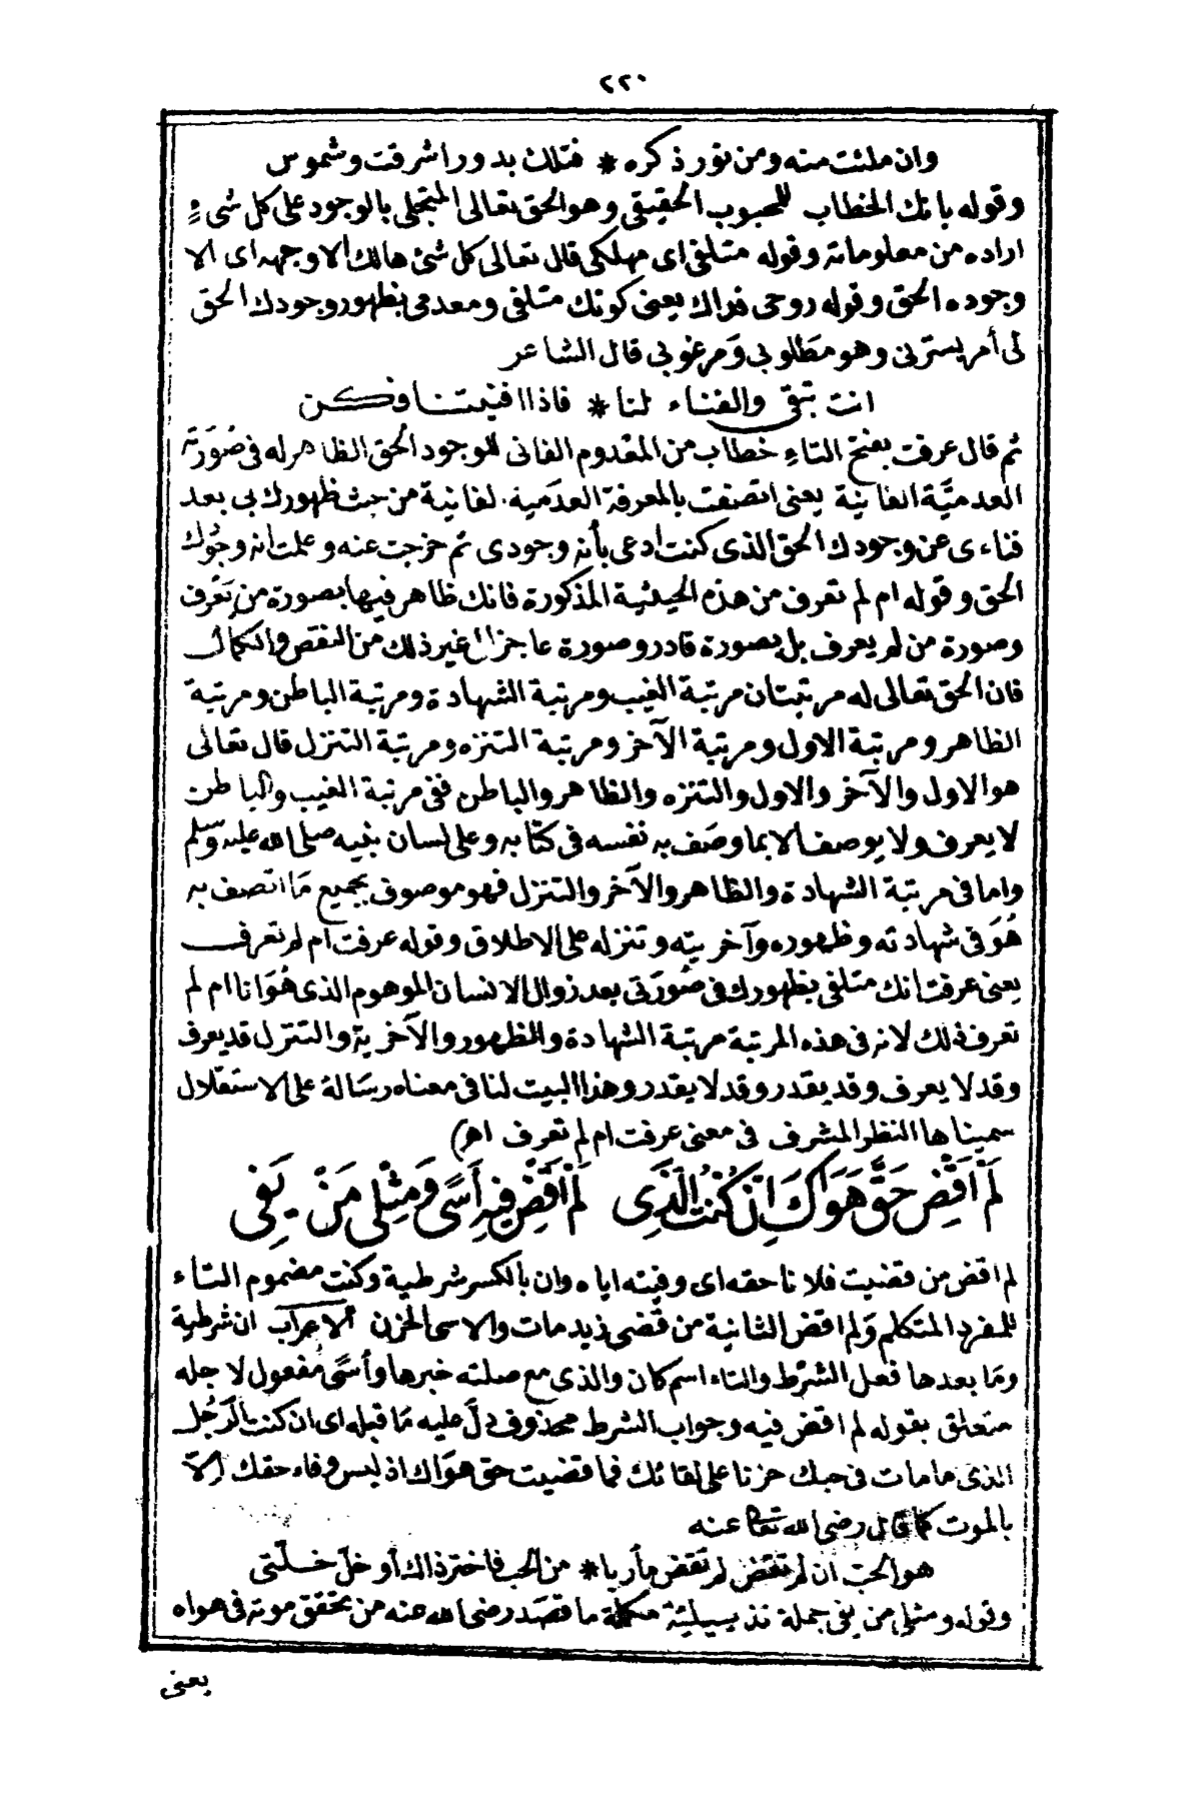 ٢٢٠
وان ملئت منه ومن نور ذكره * فتلك بدور اشرقت وشموس
وقوله بانك الخطاب للمحبوب الحقيقي وهو الحق تعالى المتجلى بالوجود على كل شيء
اراده من معلوماته وقوله متلفى اى مهلكى قال تعالى كل شئ هالك الا وجهه اى الا
وجوده الحق وقوله روحى فداك يعنى كونك متلفى ومعدمى بظهور وجودك الحق
لى أمر يسترنى وهو مطلوبى وَمرغوبى قال الشاعر
انت تبقى والفناء لنا * فاذا افنيتنا فكن
ثم قال عرفت بفتح التاءِ خطاب من المعدوم الفانى للوجود الحق الظاهر له فى صُوَرَته
العدميَّة الفانية يعنى اتصفت بالمعرفة العدَمية الفانية من حيث ظهورك بى بعد
فناءى عن وجودك الحق الذى كنت ادعى بأنه وجودى ثم خرجت عنه وعلمت انه وجُودك
الحق وقوله ام لم تعرف من هذه الحيثية المذكورة فانك ظاهر فيها بصورة من يَعْرف
وصورة من لم يعرف بل بصورة قادر وصورة عاجز الى غير ذلك من النقص والكمال
فان الحق تعالى له مرتبتان مرتبة الغيب ومرتبة الشهادة ومرتبة الباطن ومرتبة
الظاهر ومرتبة الاول ومرتبة الآخر ومرتبة التنزه ومرتبة التنزل قال تعالى
هو الاول والآخر والاول والتنزه والظاهر والباطن ففى مرتبة الغيب والباطن
لا يعرف ولا يوصف الا بما وصَف به نفسه فى كتابه وعلى لسان نبيه صلى الله عليه وسلم
واما فى مرتبة الشهادة والظاهر والآخر والتنزل فهو موصوف بجميع مَا اتصف به
هُوَ فى شهادته وظهوره وآخريته وتنزله على الاطلاق وقوله عرفت ام لم تعرف
يعنى عرفت انك متلفى بظهورك فى صُورَتى بعد زوال الانسان الموهوم الذى هُوَ انا ام لم
تعرف ذلك لانه فى هذه المرتبة مرتبة الشهادة والظهور والآخرية والتنزل قد يعرف
وقد لا يعرف وقد يقدر وقد لا يقدر وهذا البيت لنا فى معناه رسَالة على الاستقلال
سميناها النظر المشرف فى معنى عرفت ام لم تعرف اهر)
لَمْ اَقْضِ حَقَّ هَوَاكَ اِنْ كُنْتُ الَّذِى لَمْ اَقْضِ فِيهِ اَسًى وَمِثْلِى مَنْ يَفِى
لم اقض من قضيت فلانا حقه اى وفيته اياه وان بالكسر شرطية وكنت مضموم التاء
للمفرد المتكلم وَلم اقض الثانية من قضى زيد مات والاسى الحزن الاعراب ان شرطية
ومَا بعدها فعل الشرط والتاء اسم كان والذى مع صلته خبرها وأسًى مفعول لاجله
متعلق بقوله لم اقض فيه وجواب الشرط محذوف دلّ عليه مَا قبله اى ان كنت بالرَّجُل
الذى ما مات فى حبك حزنا على لقائك فما قضيت حق هوَاك اذ ليس وفاء حقك اِلّا
بالموت كما قال رضى الله تعالى عنه
هو الحب ان لم تقض لم تقض مأربا * من الحب فاختر ذاك أو خلّ خلّتى
وقوله ومثلى من يفى جملة تذييلية مكملة ما قصَد رضى الله عنه من تحقق موته فى هواه
يعنى